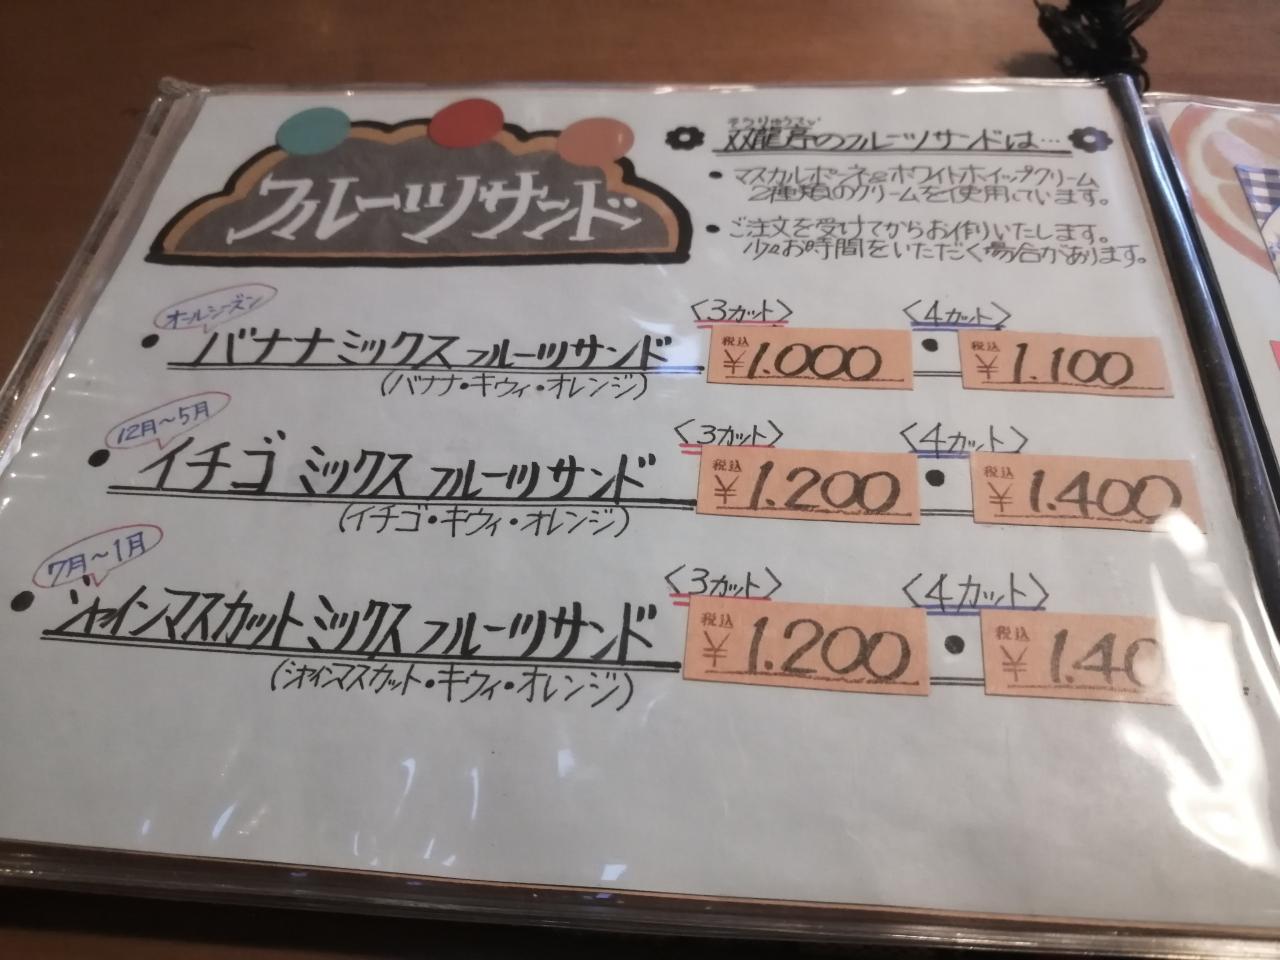 フルーツサンド
双龍亭のフルーツサンドは…
・マスカルポーネ&ホワイトホイップクリーム
2種類のクリームを使用しています。
・ご注文を受けてからお作りいたします。
少々お時間をいただく場合があります。
オールシーズン
・バナナミックスフルーツサンド
(バナナ・キウィ・オレンジ)
〈3カット〉 〈4カット〉
税込 ¥1.000 ・ 税込 ¥1.100
12月〜5月
・イチゴミックスフルーツサンド
(イチゴ・キウィ・オレンジ)
〈3カット〉 〈4カット〉
税込 ¥1.200 ・ 税込 ¥1.400
7月〜1月
・シャインマスカットミックスフルーツサンド
(シャインマスカット・キウィ・オレンジ)
〈3カット〉 〈4カット〉
税込 ¥1.200 ・ 税込 ¥1.40